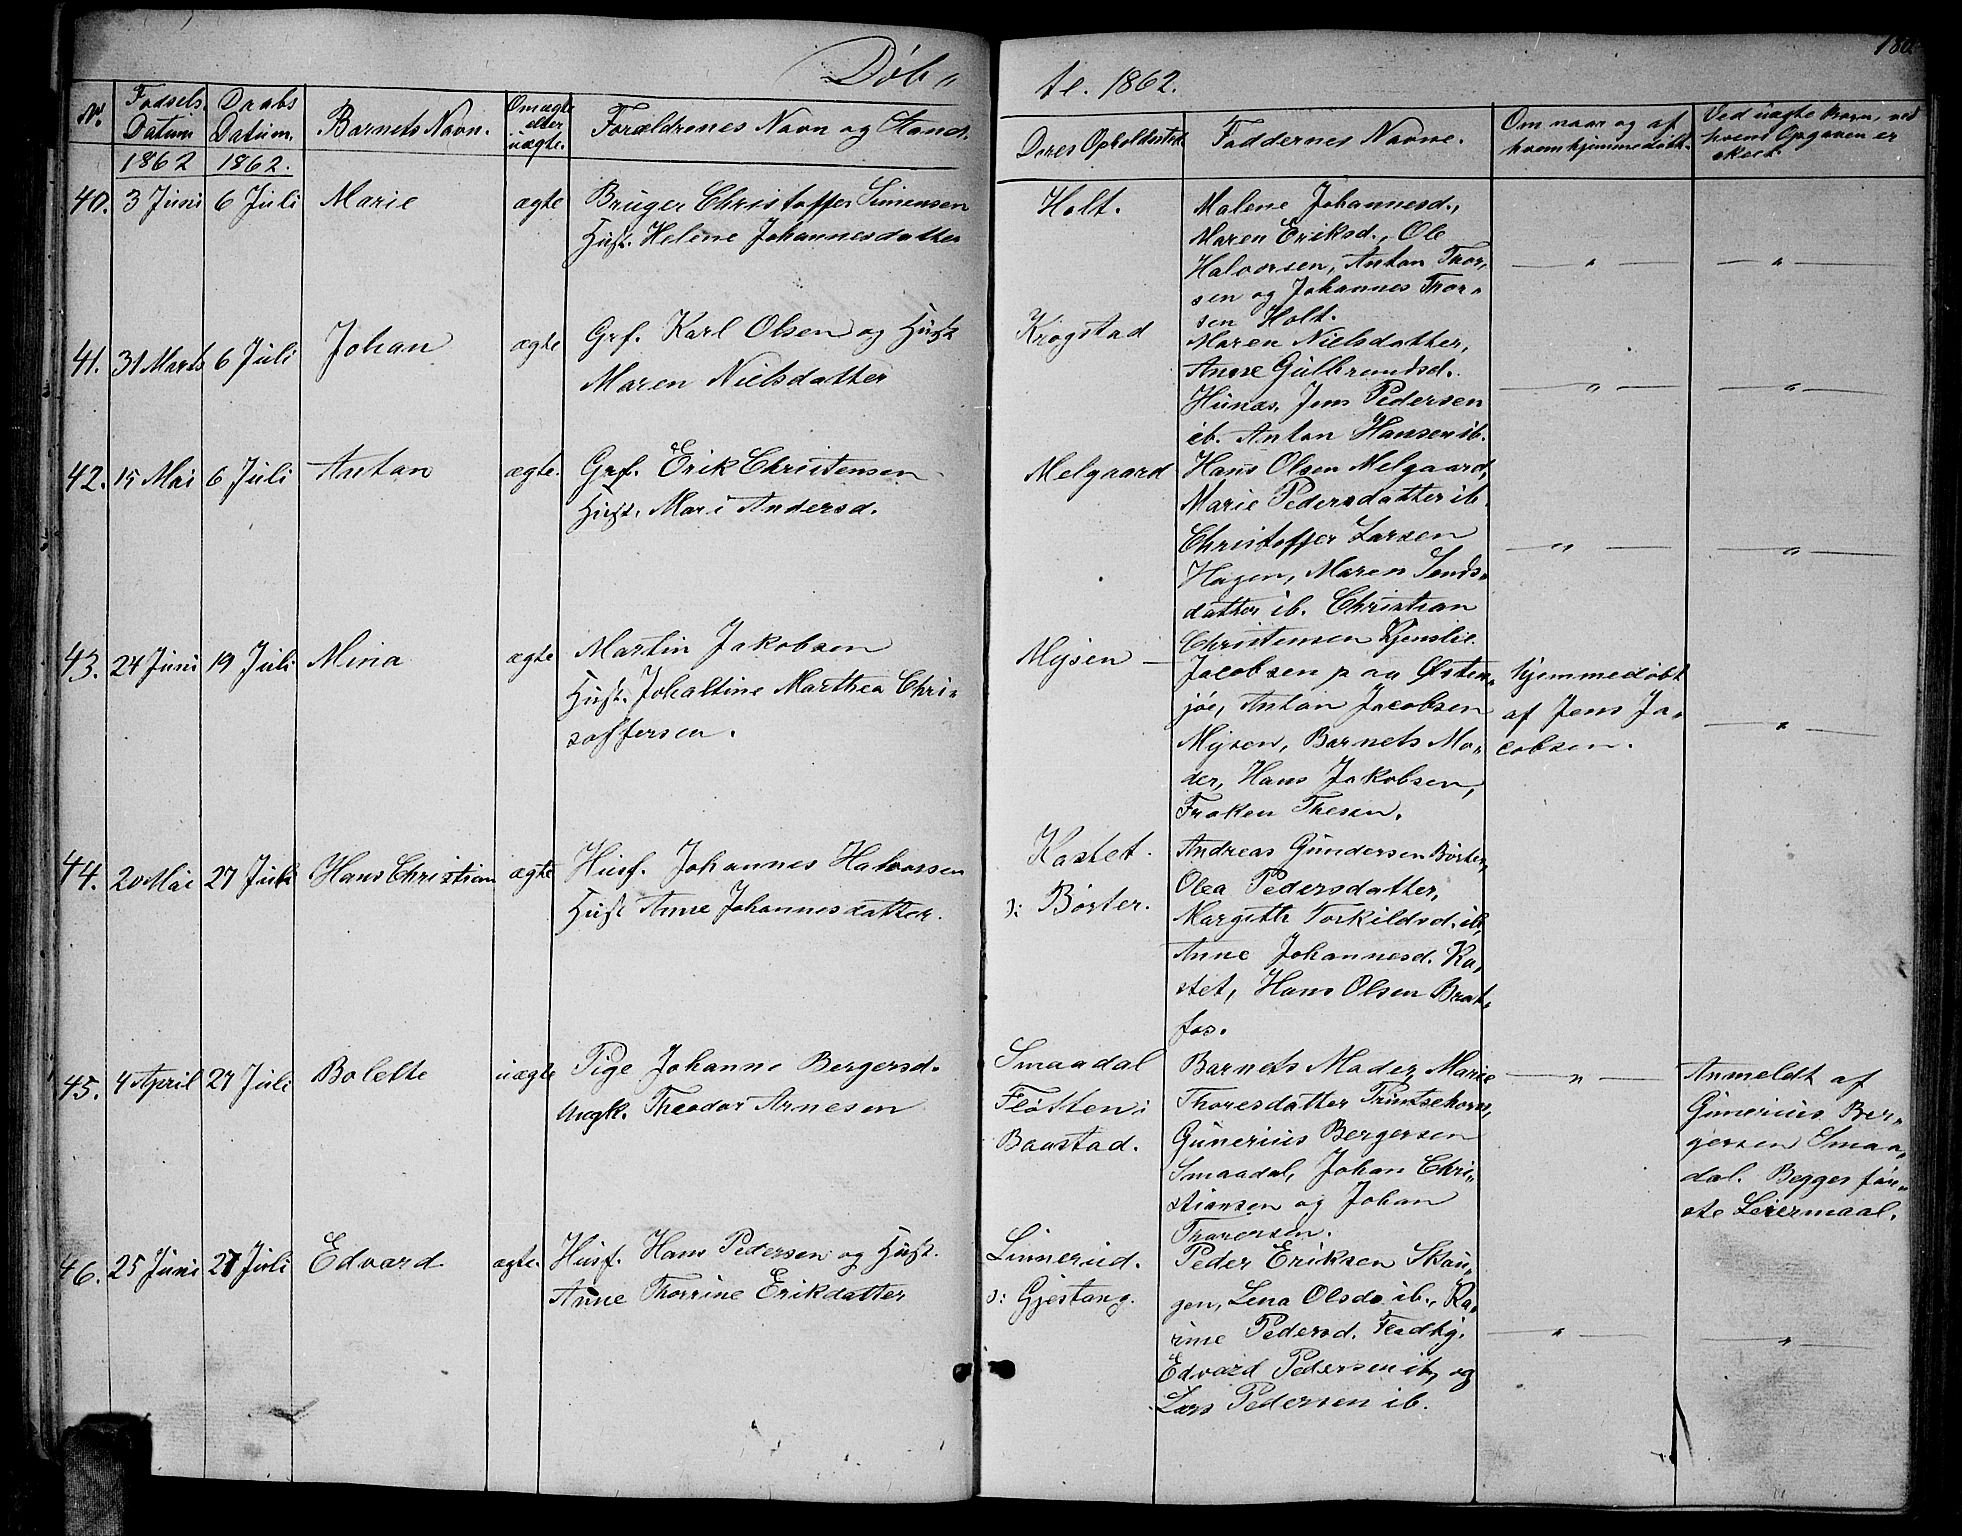 Döb„
te. 1862.
N.
Fødsels Datum
Daabs Datum.
Barnets Navn.
Om ægte eller uægte.
Forældrenes Navn og Stand.
Deres Opholdssted
Faddernes Navne.
Om naar og af hvem hjemmedøbt.
Ved uægte Børn, ved hvem Opgaven er skeet.
1862
1862.
40.
3 Juni
6 Juli
Marie
ægte
Bruger Christoffer Simensen
Hust. Helene Johannesdatter
Holt.
Malene Johannesd.,
Maren Eriksd., Ole
Halvorsen, Anton Thor„
sen og Johannes Thor„
sen Holt.
— „ —
— „ —
41.
31 Marts
6 Juli
Johan
ægte
Grf. Karl Olsen og Hust
Maren Nielsdatter
Krogstad
Maren Nielsdatter,
Anne Gulbrandsd.
Hunæs, Jens Pedersen
ib. Anton Hansen ib.
— „ —
— „ —
42.
15 Mai
6 Juli
Anton
ægte.
Grf. Erik Christensen
Hust. Mari Andersd.
Melgaard
Hans Olsen Melgaard,
Marie Pedersdatter ib.
Christoffer Larsen
Hagen, Maren
datter ib. Christian
Christensen
— „ —
— „ —
43.
24 Juni
19 Juli
Mina
ægte
Martin Jakobsen
Hust. Johaltine Marthea Chri„
stoffersen.
Mysen —
Jacobsen paa Østen„
jøe, Anton Jacobsen
Mysen, Barnets Mo„
der, Hans Jakobsen,
Frøken Thesen.
hjemmedøbt
af Jens Ja„
cobsen.
— „ —
44.
20 Mai
27 Juli
Hans Christian
ægte
Husf. Johannes Halvorsen
Hust Anne Johannesdatter.
Kastet.
ɔ: Børter.
Andreas Gundersen Børter,
Olea Pedersdatter,
Margith Torkildsd. ib,
Anne Johannesd. Ka„
stet, Hans Olsen Brat„
fos.
45.
4 April
27 Juli
Bolette
uægte
Pige Johanne Bergersd.
Ungk. Theodor Arnesen
Smaadal
Fløtten i
Baastad.
Barnets Moder, Marie
Thoresdatter
Gunerius Bergersen
Smaadal, Johan Chri„
stiansen og Johan
Thoresen.
— „ —
Anmeldt af
Gunerius Ber„
gersen Smaa„
dal. Begges før„
ste Leiermaal.
46.
25 Juni
27 Juli
Edvard
ægte.
Husf. Hans Pedersen og Hust.
Anne Thorine Erikdatter
Linnerud.
ɔ: Gjestang.
Peder Eriksen Skau„
gen, Lena Olsd. ib., Ka„
rine Pedersd.
Edvard Pedersen ib, og
Lars Pedersen ib.
— „ —
— „ —